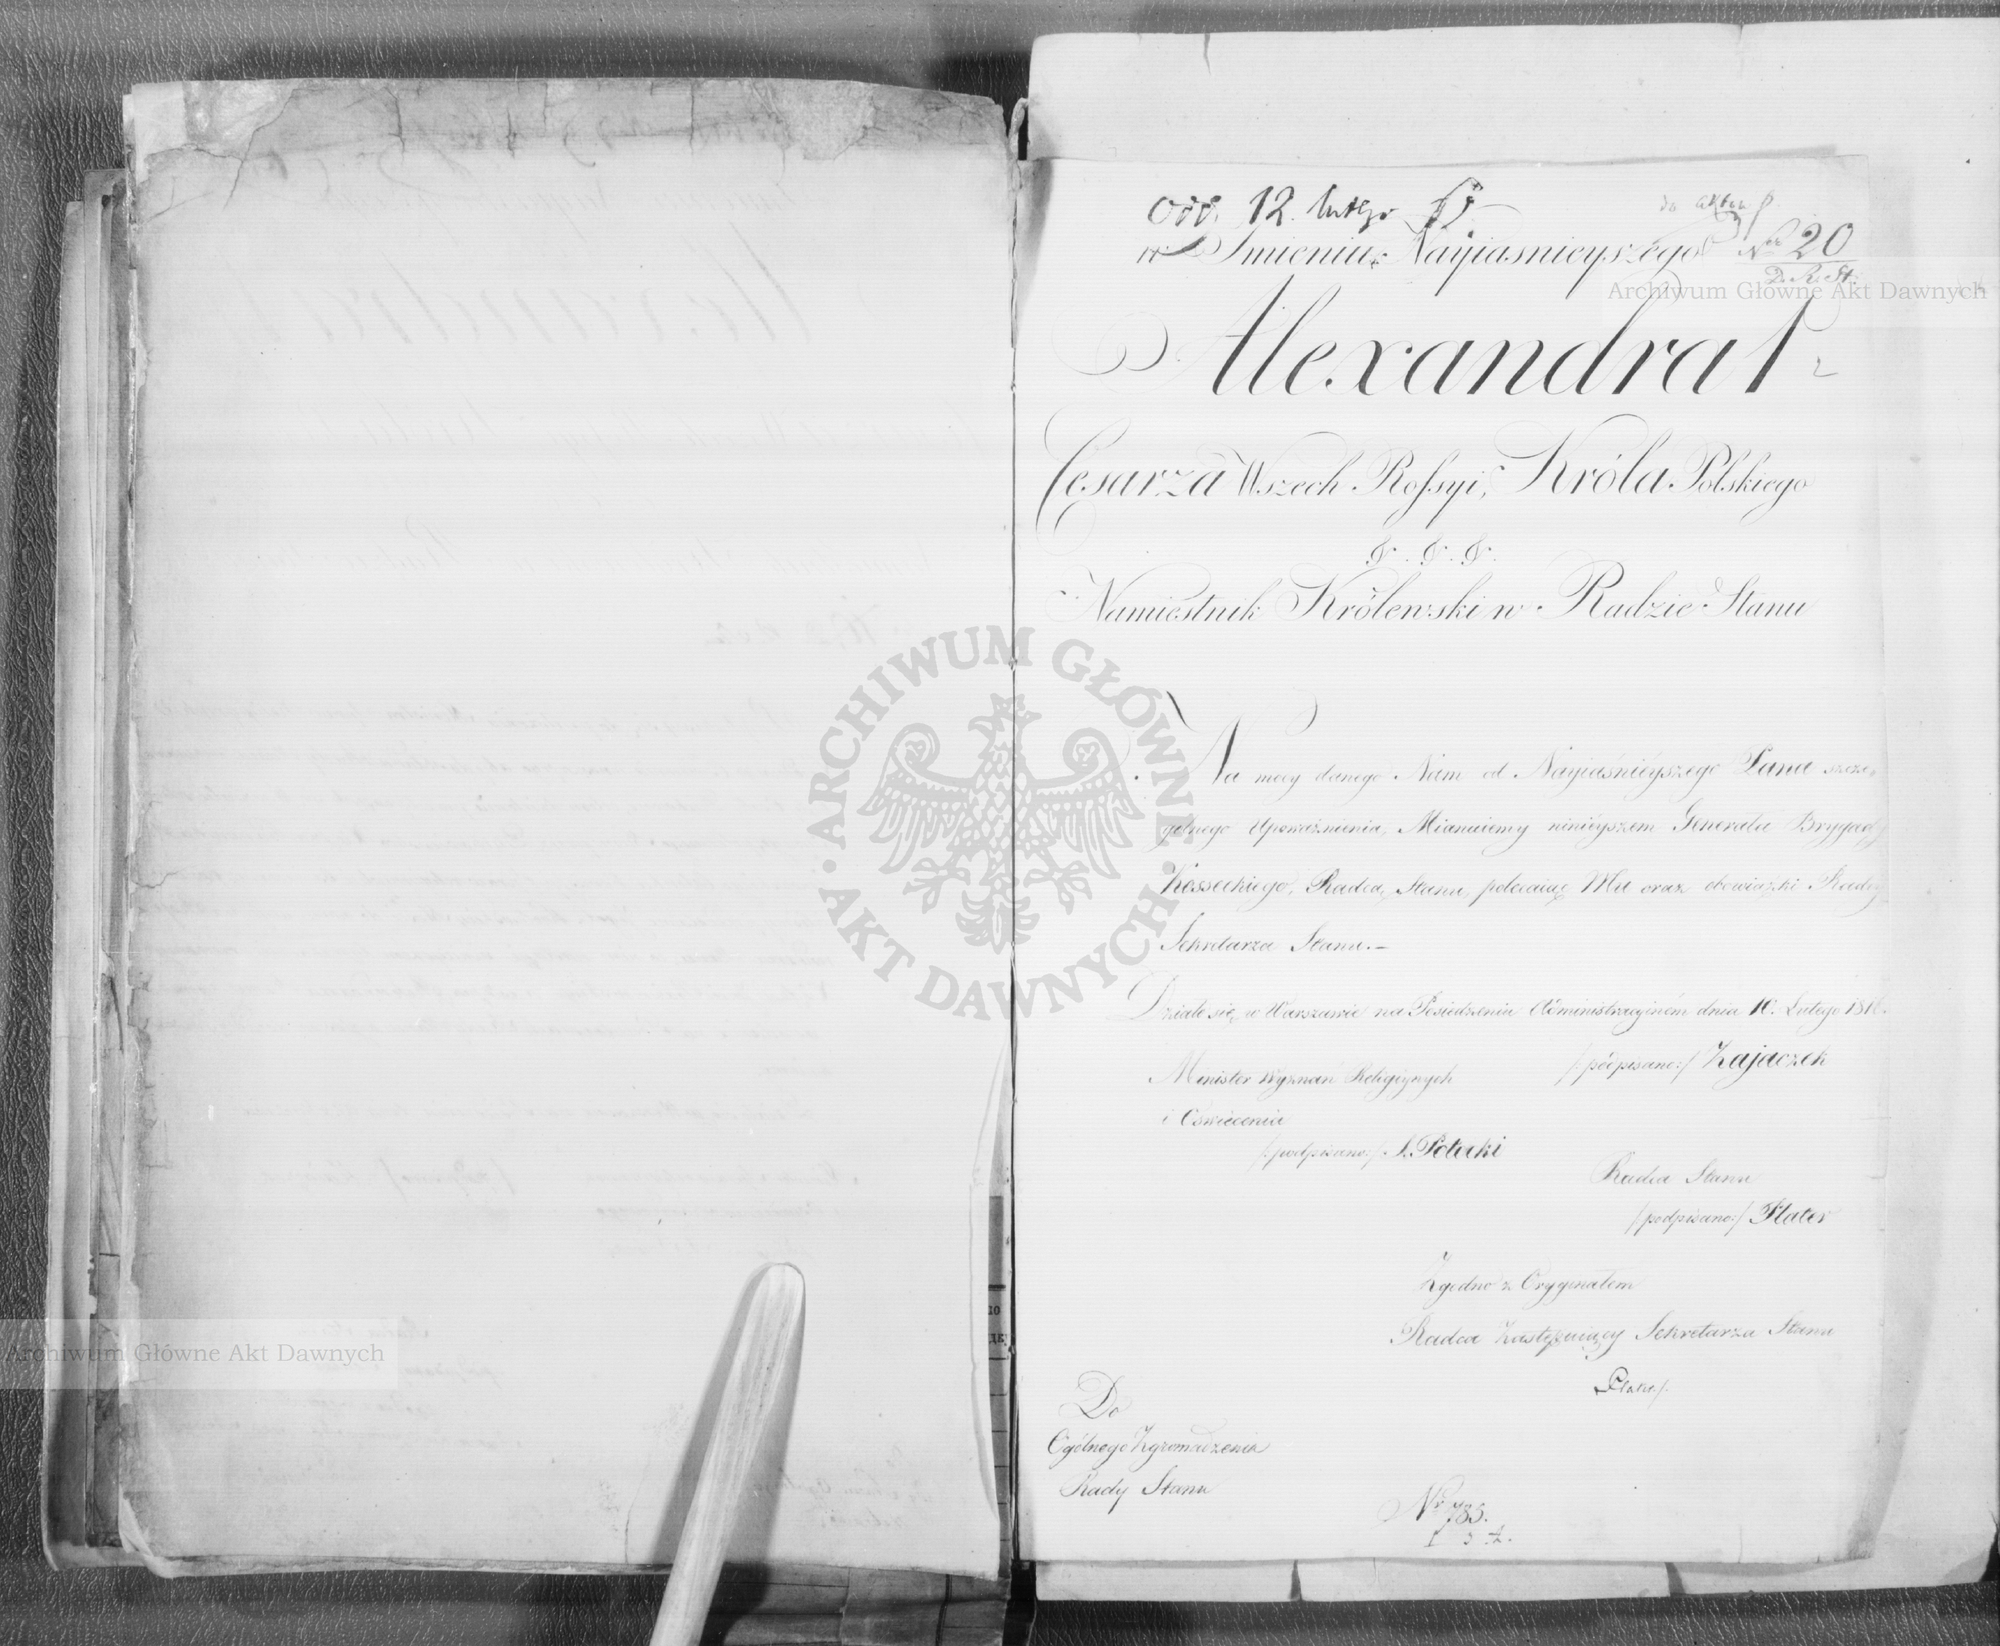 odd. 12. lutego
do aktów
w Imieniu Nayiaśnieyszego
Nro 20
D. R. St.
Alexandra I
Cesarza Wszech Rossyi, Króla Polskiego
&. &. &.
Namiestnik Królewski w Radzie Stanu
Na mocy danego Nam od Nayiaśnieyszego Pana szcze„
gólnego Upoważnienia, Mianuiemy ninieyszem Generała Brygady
Kosseckiego, Radcą Stanu, polecaiąc Mu oraz obowiązki Radcy
Sekretarza Stanu.—
Działo się w Warszawie na Posiedzeniu Administracyiném dnia 10. Lutego 181
/:podpisano:/ Zajączek
Minister Wyznań Religiynych
i Oświecenia
/:podpisano:/ S. Potocki
Radca Stanu
/podpisano:/ Plater
Zgodno z Oryginałem
Radca Zastępuiący Sekretarza Stanu
Plater
Do
Ogólnego Zgromadzenia
Rady Stanu
Nro 785.
Archiwum Główne Akt Dawnych
Archiwum Główne Akt Dawnych
ARCHIWUM GŁÓWNE
AKT DAWNYCH